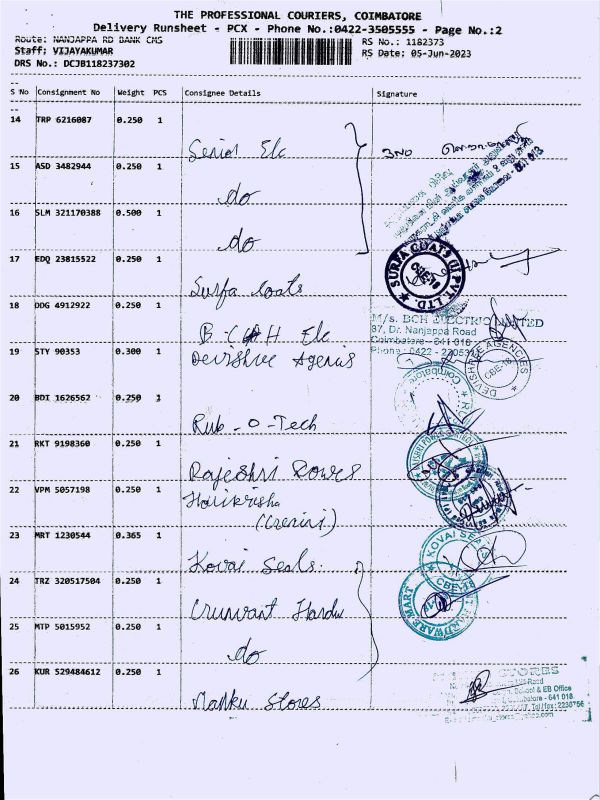 THE PROFESSIONAL COURIERS, COIMBATORE
Delivery Runsheet - PCX - Phone No.:0422-3505555 - Page No.:2
Route: NANJAPPA RD BANK CMS
RS No.: 1182373
Staff: VIJAYAKUMAR
RS Date: 05-Jun-2023
DRS No.: DCJB118237302
S No Consignment No Weight PCS Consignee Details Signature
14 TRP 6216087 0.250 1
Senior Elc
15 ASD 3482944 0.250 1
do
16 SLM 321170388 0.500 1
do
17 EDQ 23815522 0.250 1
SURFA COATS (I) PVT. LTD.
CBE-18
Surfa Coats
18 DDG 4912922 0.250 1
M/s. BCH ELECTRIC LIMITED
87, Dr. Nanjappa Road
Coimbatore - 641 018
Phone : 0422 -
B.C.H Elc
19 STY 90353 0.300 1
Devishree Agencies
DEVISHREE AGENCIES
CBE-18
20 BDI 1626562 0.250 1
Coimbatore
Rub-O-Tech
21 RKT 9198360 0.250 1
Rajeshri Power
22 VPM 5057198 0.250 1
Harikrisha
23 MRT 1230544 0.365 1
KOVAI SEALS
Kovai Seals.
24 TRZ 320517504 0.250 1
HARDWARE MART
25 MTP 5015952 0.250 1
do
26 KUR 529484612 0.250 1
STORES
& EB Office
Coimbatore - 641 018
Nanku Stores